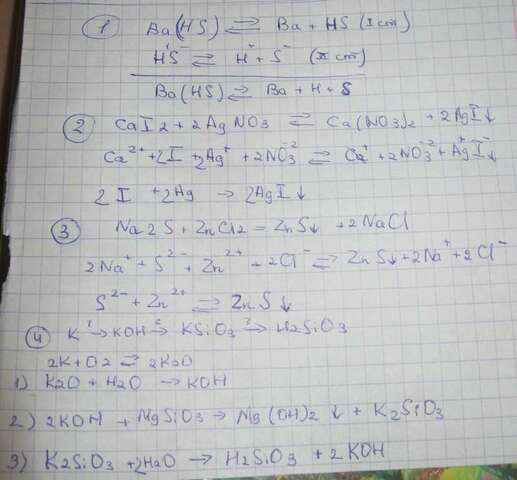 1 Ba(HS) ⇄ Ba + HS (I ст)
HS⁻ ⇄ H⁺ + S⁻ (II ст)
Ba(HS) ⇄ Ba + H + S
2 CaI2 + 2AgNO3 ⇄ Ca(NO3)2 + 2AgI↓
Ca²⁺ + 2I⁻ + 2Ag⁺ + 2NO3⁻² ⇄ Ca⁺ + 2NO3⁻² + Ag⁺I⁻↓
2I + 2Ag → 2AgI↓
3 Na2S + ZnCl2 = ZnS↓ + 2NaCl
2Na⁺ + S²⁻ + Zn²⁺ + 2Cl⁻ ⇄ ZnS↓ + 2Na⁺ + 2Cl⁻
S²⁻ + Zn²⁺ ⇄ ZnS↓
4 K →¹ KOH →² KSiO3 →³ H2SiO3
2K + O2 ⇄ 2K2O
1) K2O + H2O → KOH
2) 2KOH + MgSiO3 → Mg(OH)2↓ + K2SiO3
3) K2SiO3 + 2H2O → H2SiO3 + 2KOH